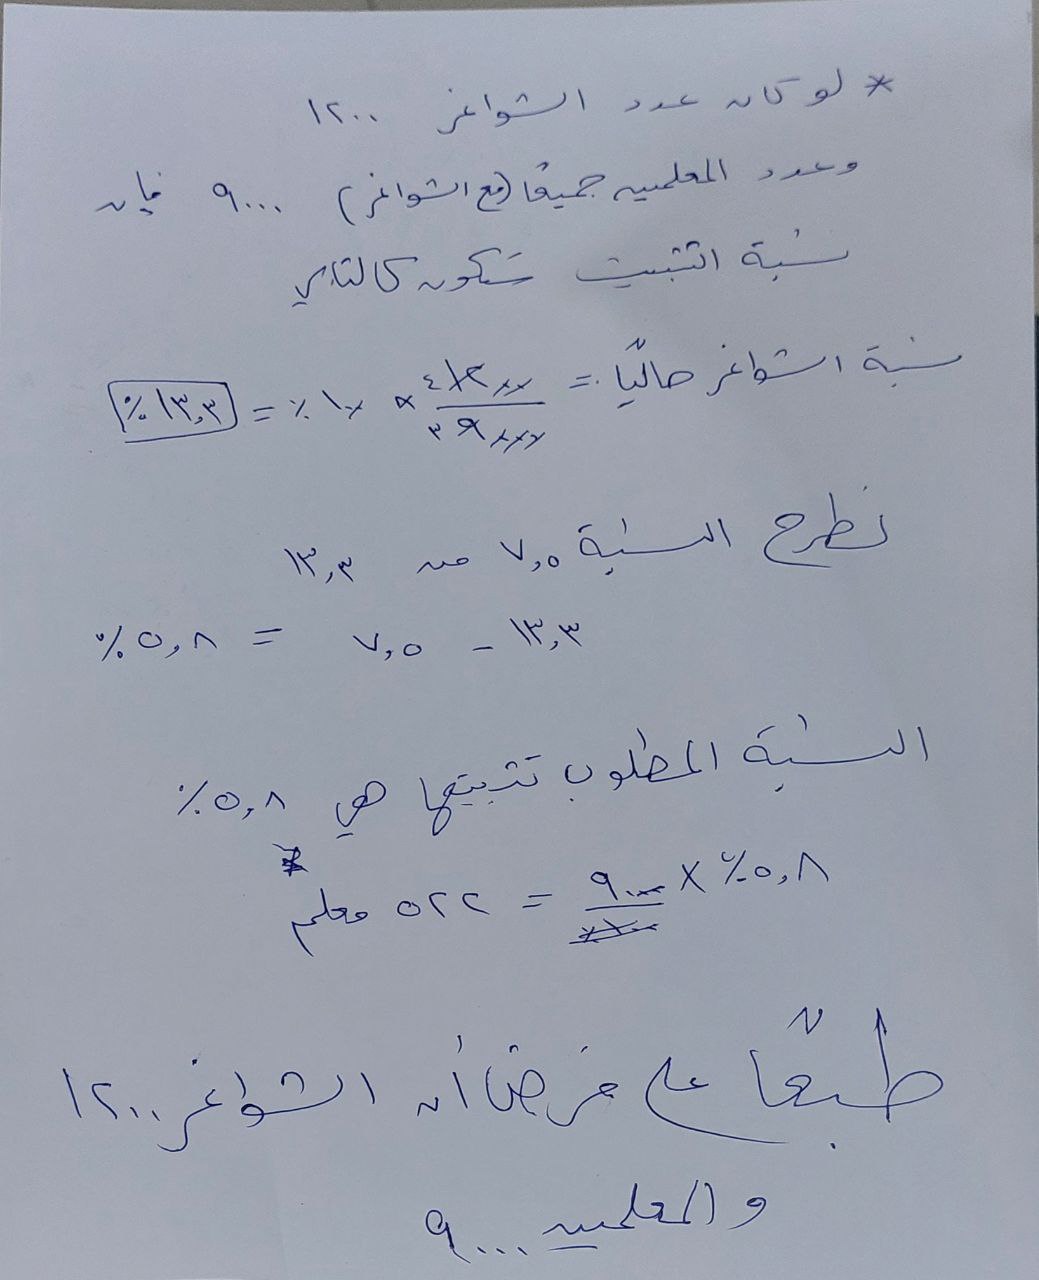 * لو كان عدد الشواغر ١٢٠٠
وعدد المعلمين جميعًا (مع الشواغر) ٩٠٠٠ فإن
نسبة التثبيت ستكون كالتالي
نسبة الشواغر حاليًا = ١٢٠٠ / ٩٠٠٠ × ١٠٠ ٪ = ١٣,٣ ٪
نطرح النسبة ٧,٥ من ١٣,٣
١٣,٣ - ٧,٥ = ٥,٨ ٪
النسبة المطلوب تثبيتها هي ٥,٨ ٪
٥,٨ ٪ × ٩٠٠٠ = ٥٢٢ معلم
طبعًا على فرض أن الشواغر ١٢٠٠
والمعلمين ٩٠٠٠